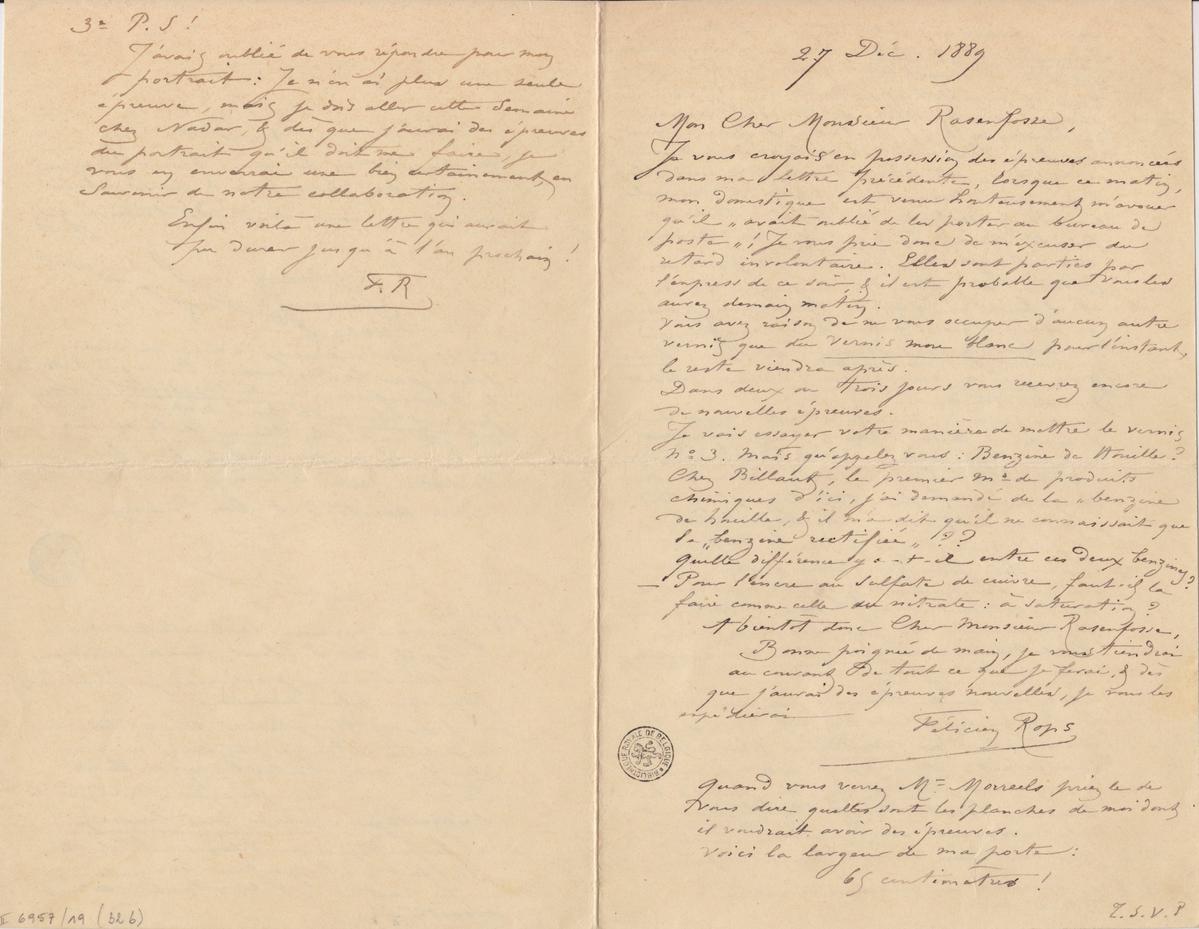 27 Déc. 1889
Mon Cher Monsieur Rasenfosse,
Je vous croyais en possession des épreuves annoncées
dans ma lettre précédente, lorsque ce matin,
mon domestique est venu honteusement m'avouer
qu'il „avait oublié de les porter au bureau de
poste„! Je vous prie donc de m'excuser du
retard involontaire. Elles sont parties par
l'express de ce soir, & il est probable que vous les
aurez demain matin.
Vous avez raison de ne vous occuper d'aucun autre
vernis que du vernis mou blanc pour l'instant,
le reste viendra après.
Dans deux ou trois jours vous recevrez encore
de nouvelles épreuves.
Je vais essayer votre manière de mettre le vernis
no 3. Mais qu'appelez vous : Benzine de Houille?
Chez Billault, le premier md de produits
chimiques d'ici, j'ai demandé de la „benzine
de houille, & il m'a dit qu'il ne connaissait que
la „benzine rectifiée„ ??
Quelle différence y a-t-il entre ces deux benzines?
— Pour l'encre au sulfate de cuivre, faut-il la
faire comme celle du nitrate : à saturation?
A bientôt donc Cher Monsieur Rasenfosse,
Bonne poignée de main, je vous tiendrai
au courant de tout ce que je ferai, & dès
que j'aurai des épreuves nouvelles, je vous les
expédierai
Félicien Rops
BIBLIOTHEQUE ROYALE DE BELGIQUE
Quand vous verrez Mr Morreels priez le de
vous dire quelles sont les planches de moi dont
il voudrait avoir des épreuves.
Voici la largeur de ma porte :
65 centimètres !
T.S.V.P
3e P.S!
J'avais oublié de vous répondre pour mon
portrait : Je n'en ai plus une seule
épreuve, mais je dois aller cette semaine
chez Nadar, & dès que j'aurai des épreuves
du portrait qu'il doit me faire, je
vous en enverrai une bien certainement, en
souvenir de notre collaboration.
Enfin voilà une lettre qui aurait
pu durer jusqu'à l'an prochain !
F.R
II 6957/19 (62 b)